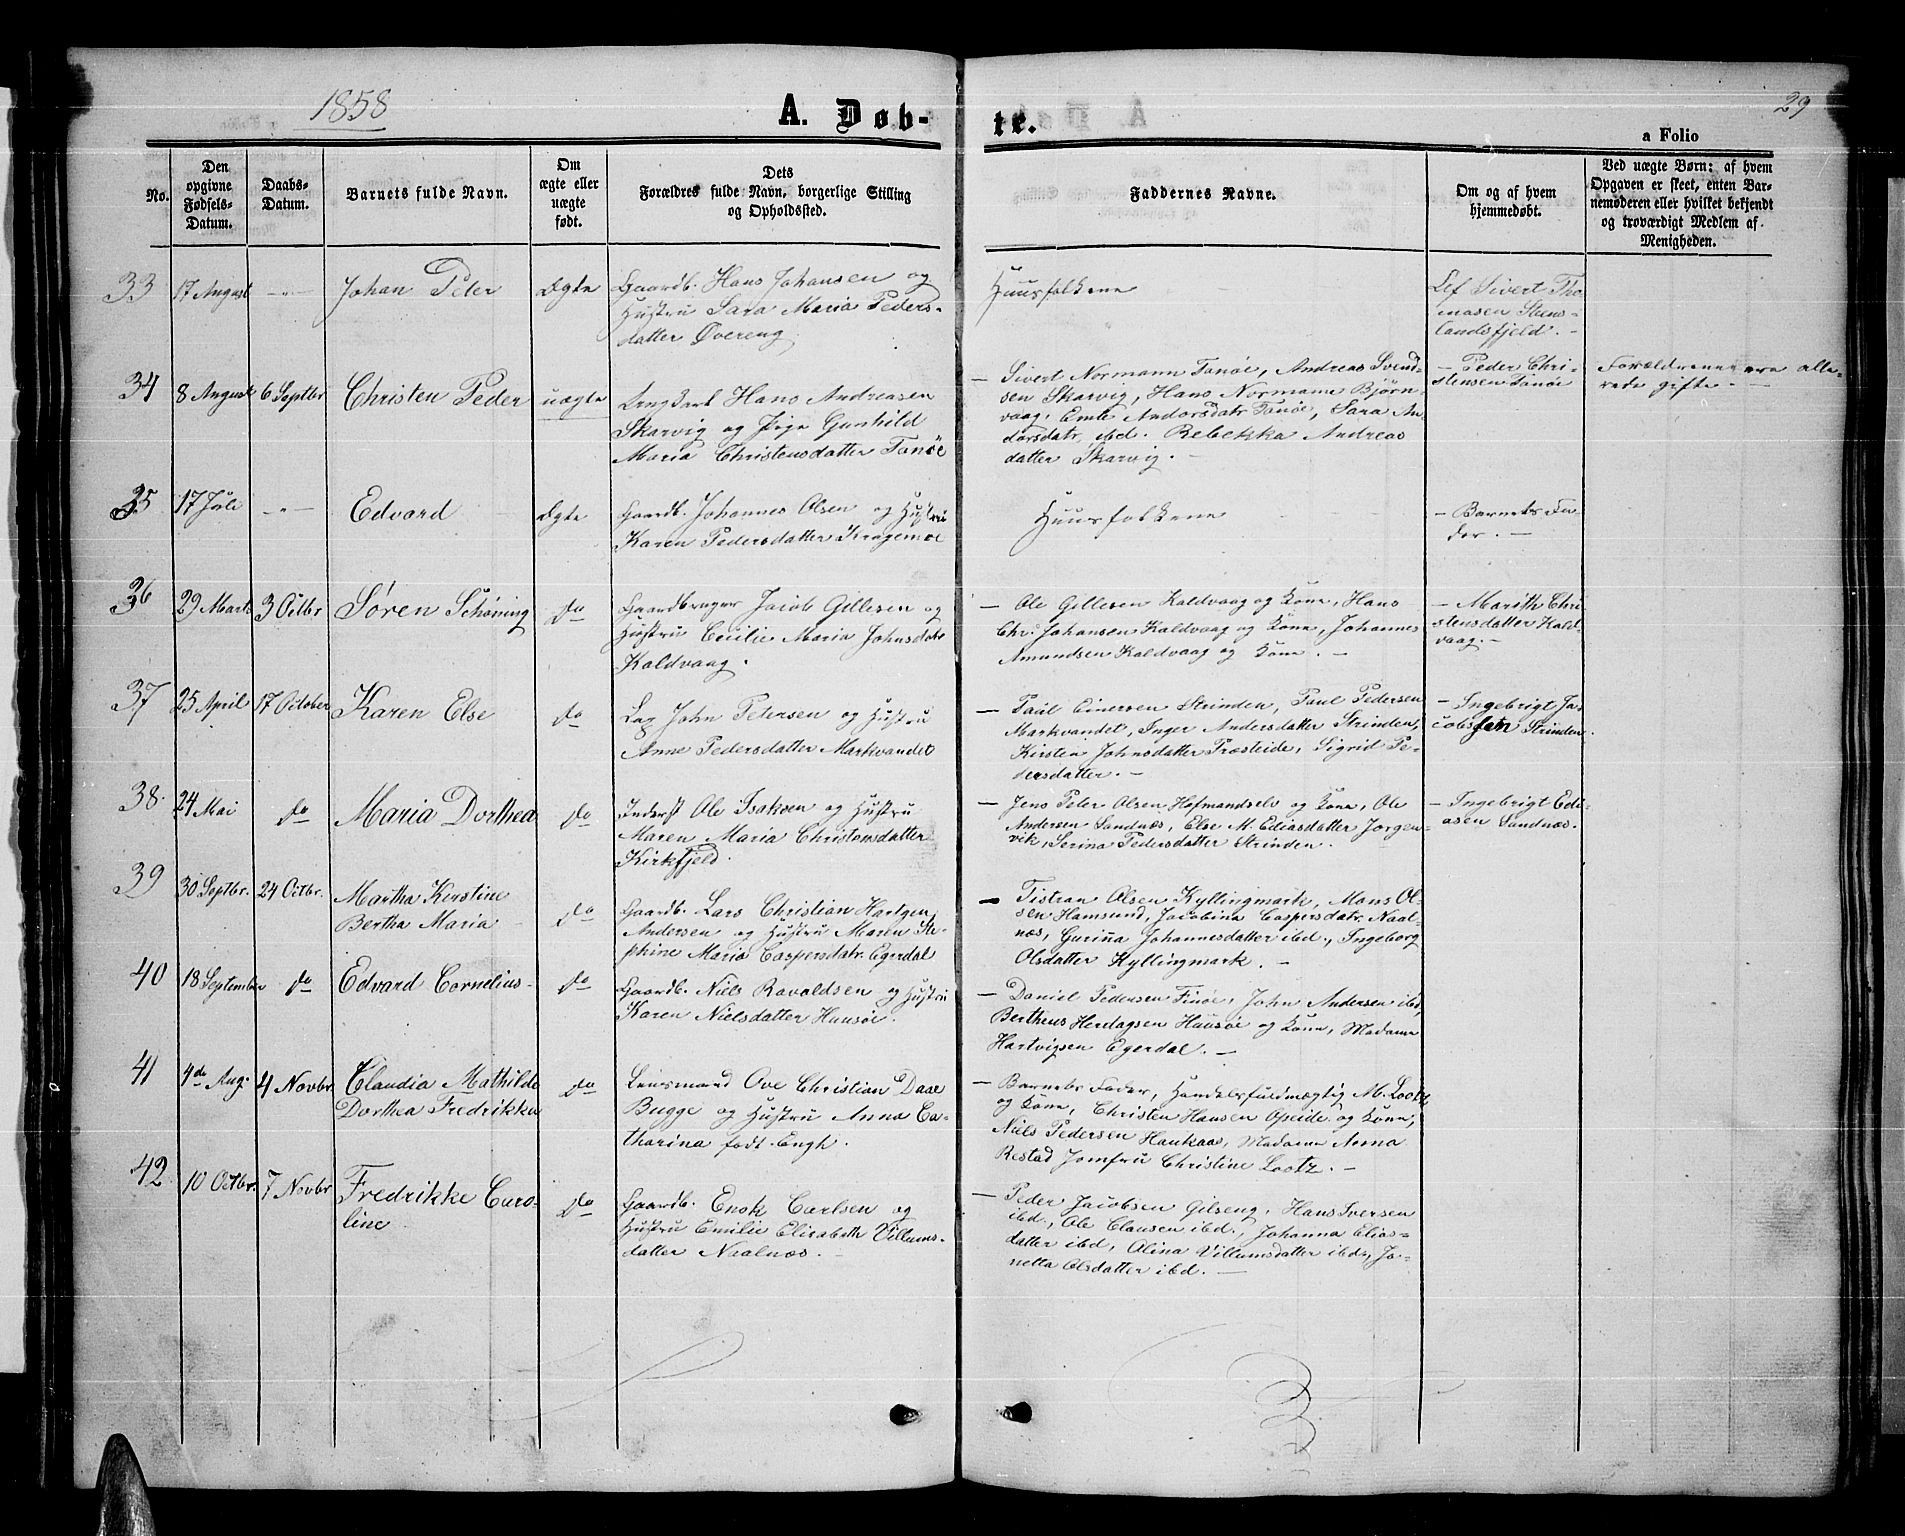 1858
A. Døb-
te.
29
a Folio
No.
Den
opgivne
Fødsels-
Datum.
Daabs-
Datum.
Barnets fulde Navn.
Om
ægte eller
uægte
født.
Dets
Forældres fulde Navn, borgerlige Stilling
og Opholdssted.
Faddernes Navne.
Om og af hvem
hjemmedøbt.
Ved uægte Børn: af hvem
Opgaven er skeet, enten Bar-
nemoderen eller hvilket bekjendt
og troværdigt Medlem af
Menigheden.
33 17 August -"- Johan Peter Ægte
Gaardb. Hans Johansen og
Hustru Sara Maria Peders-
datter Øvereng
Huusfolkene
Lef Sivert Tho-
masen Steens-
landsfjeld. -
34 8 August 6 Septbr Christen Peder uægte
Ungkarl Hans Andreasen
Skarvig og Pige Gunhild
Maria Christensdatter Tanöe
- Sivert Normann Tanöe, Andreas Svend-
sen Skarvig, Hans Normann Bjørn-
vaag, Emte Andorsdatr Tanöe, Sara An-
dorsdatr. ibd. Rebekka Andreas
datter Skarvig. -
- Peder Chri-
stensen Tanöe
Forældrenne ere alle-
rede gifte. -
35 17 Juli -"- Edvard Ægte
Gaardb. Johannes Olsen og Hustru
Karen Pedersdatter Kragemoe
Huusfolkene
- Barnets Fa-
der. -
36 29 Mart 3 Octbr Søren Schøning do
Gaardbruger Jacob Gillesen og
Hustru Cecilie Maria Johnsdatr
Kaldvaag.
- Ole Gillesen Kaldvaag og Kone, Hans
Chr. Johansen Kaldvaag og Kone, Johannes
Amundsen Kaldvaag og Kone. -
- Marith Chri-
stensdatter Kald-
vaag. -
37 25 April 17 October Karen Else do
Lap John Petersen og Hustru
Anne Pedersdatter Markvandet
- Paul Einersen Strinden, Paul Pedersen
Markvandet, Inger Andersdatter Strinden,
Kirsten Johnsdatter Præsteide, Sigrid Pe-
dersdatter. -
- Ingebrigt Ja-
cobsen Strinden.
38. 24 Mai do Maria Dorthea do
Inderst Ole Isaksen og Hustru
Maren Maria Christensdatter
Kirkfjeld.
- Jens Peter Olsen Hofmandselv og Kone, Ole
Andersen Sandnæs, Else M. Ediasdatter Jorgen-
vik, Serina Pedersdatter Strinden.
- Ingebrigt Edi-
asen Sandnæs.
39 30 Septbr. 24 Octbr. Martha Kirstine
Bertha Maria do
Gaardb. Lars Christian Hartgen
Andersen og Hustru Maren Se-
phine Maria Caspersdatr. Egerdal
- Tistran Olsen Kyllingmark, Mons Ol-
sen Hamsund, Jacobina Caspersdatr. Naal-
næs, Gurina Johannesdatter ibd., Ingeborg
Olsdatter Kyllingmark. -
40 18 September do Edvard Cornelius- do
Gaardb. Niels Ravaldsen og Hustru
Karen Nielsdatter Huusöe.
- Daniel Pedersen Finöe, John Andersen ibd,
Bertheus Herdagsen Huusöe og Kone, Madame
Hartvigsen Egerdal. -
41 4de Aug. 4 Novbr. Claudia Mathilde
Dorthea Fredrikke do
Lensmand Ove Christian Daae
Bugge og Hustru Anna Ca-
tharina født Engh.
- Barnets Fader, Handelsfuldmægtig M. Lootz
og Kone, Christen Hansen Opeide og Kone,
Niels Pedersen Haukaas, Madame Anna
Restad Jomfru Christine Lootz. -
42 10 Octbr. 7 Novbr Fredrikke Caro-
line do
Gaardb. Enok Carlsen og
Hustru Emilie Elisabeth Villums-
datter Naalnæs. -
- Peder Jacobsen Gilseng, Hans Iversen
ibd., Ole Clausen ibd., Johanna Elias-
datter ibd, Olina Villumsdatter ibd., Jo-
netta Olsdatter ibd. -